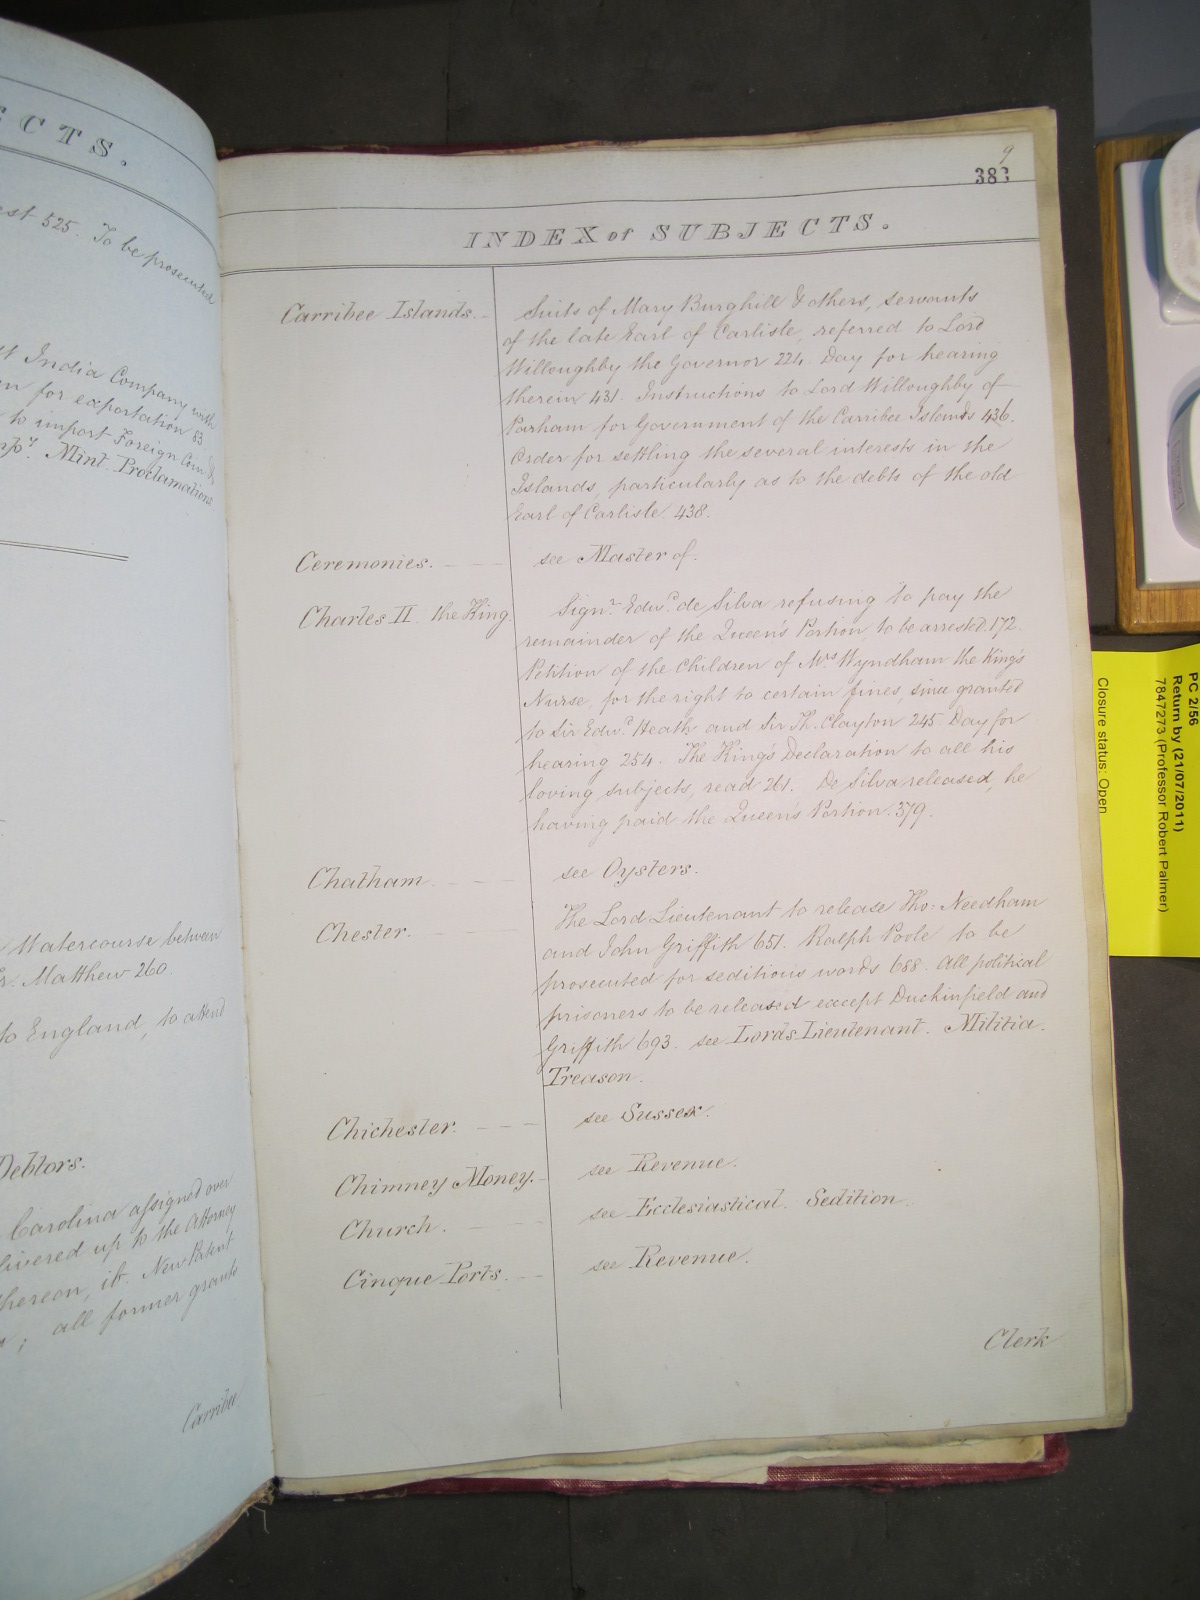 ECTS.
est 525. To be prosecuted
st India Company with
n for exportation 83
to import Foreign Coin &
Mint. Proclamations
Watercourse between
Matthew 260.
to England, to attend
Debtors.
Carolina assigned over
livered up to the Attorney
thereon, ib. New Patent
; all former grants
Carribee
9
383
INDEX of SUBJECTS.
Carribee Islands. Suits of Mary Burghill & others, servants
of the late Earl of Carlisle, referred to Lord
Willoughby the Governor 224. Day for hearing
therein 431. Instructions to Lord Willoughby of
Parham for Government of the Carribee Islands 436.
Order for settling the several interests in the
Islands, particularly as to the debts of the old
Earl of Carlisle 438.
Ceremonies. see Master of.
Charles II. the King. Signr. Edwd. de Silva refusing to pay the
remainder of the Queen's Portion, to be arrested. 172.
Petition of the Children of Mrs Wyndham the King's
Nurse, for the right to certain fines, since granted
to Sir Edwd. Heath and Sir Th. Clayton 245. Day for
hearing 254. The King's Declaration to all his
loving subjects, read 261. De Silva released, he
having paid the Queen's Portion. 379.
Chatham. see Oysters.
Chester. The Lord Lieutenant to release Tho: Needham
and John Griffith 651. Ralph Poole to be
prosecuted for seditious words 688. All political
prisoners to be released except Duckinfield and
Griffith 693. see Lords Lieutenant. Militia.
Treason.
Chichester. see Sussex.
Chimney Money. see Revenue.
Church. see Ecclesiastical. Sedition.
Cinque Ports. see Revenue.
Clerk
PC 2/56
Return by (21/07/2011)
7847273 (Professor Robert Palmer)
Closure status: Open